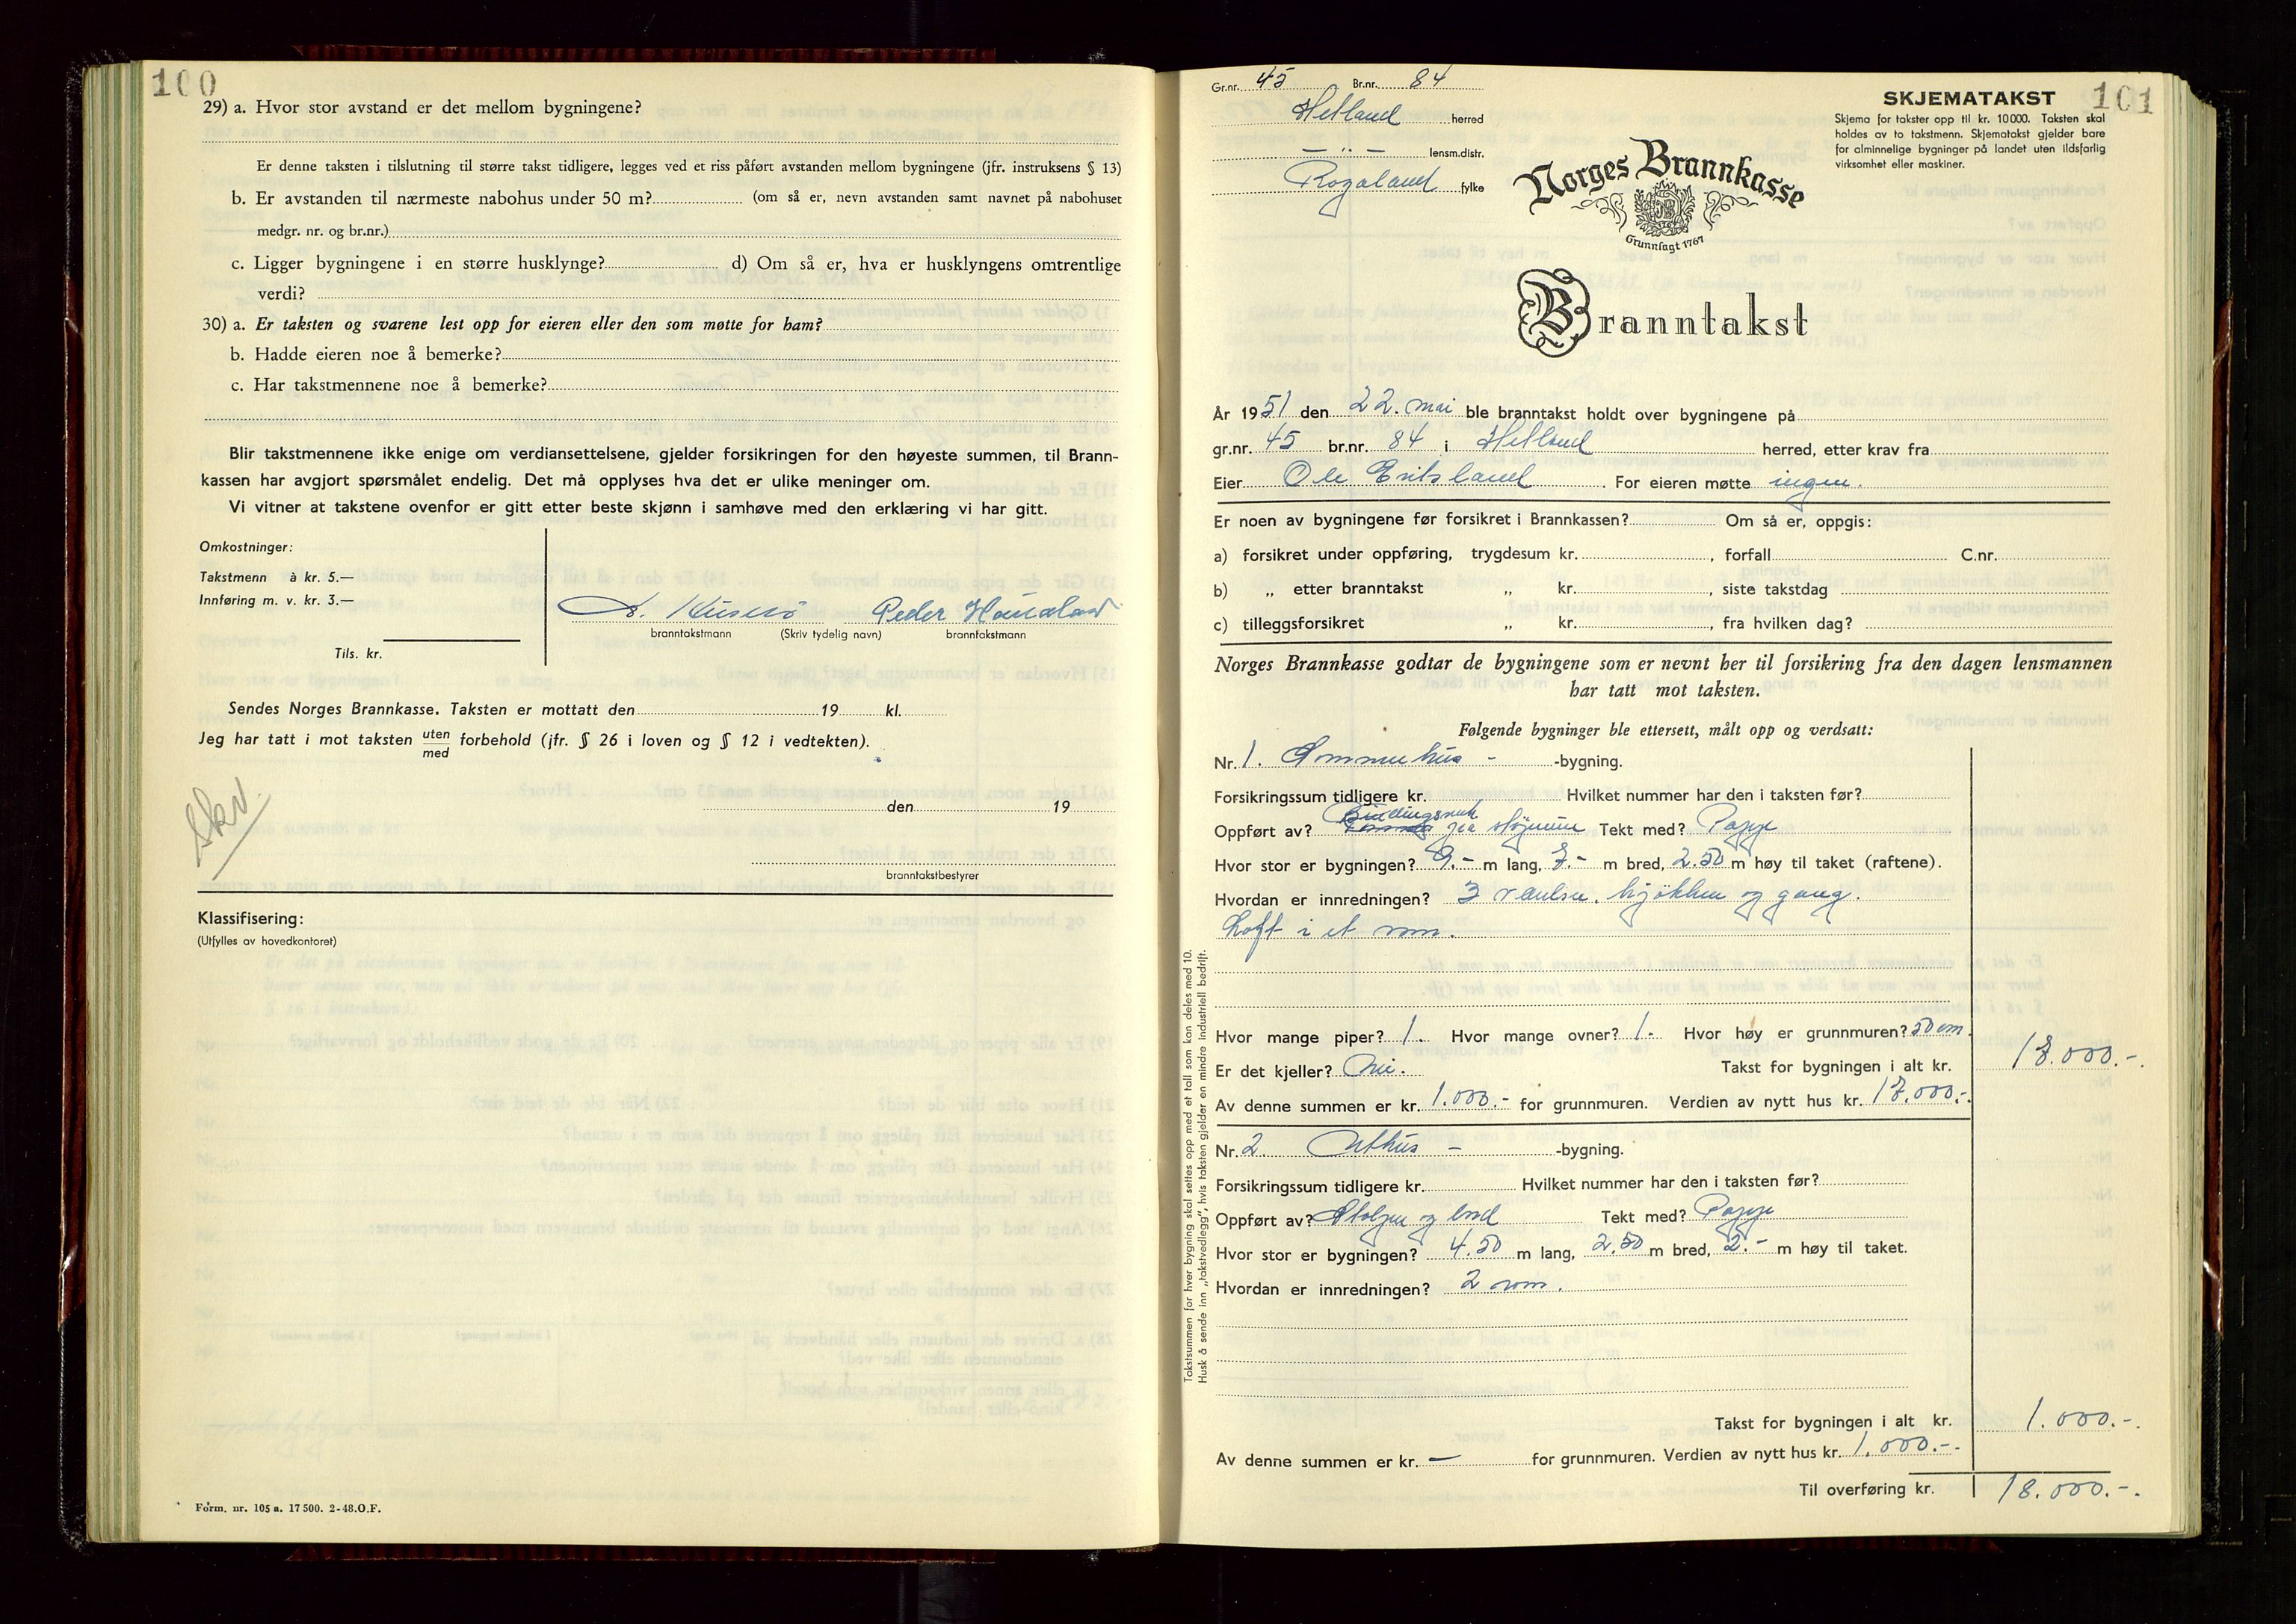 100
29) a. Hvor stor avstand er det mellom bygningene?
Er denne taksten i tilslutning til større takst tidligere, legges ved et riss påført avstanden mellom bygningene (jfr. instruksens § 13)
b. Er avstanden til nærmeste nabohus under 50 m? (om så er, nevn avstanden samt navnet på nabohuset
medgr. nr. og br.nr.)
c. Ligger bygningene i en større husklynge? d) Om så er, hva er husklyngens omtrentlige
verdi?
30) a. Er taksten og svarene lest opp for eieren eller den som møtte for ham?
b. Hadde eieren noe å bemerke?
c. Har takstmennene noe å bemerke?
Blir takstmennene ikke enige om verdiansettelsene, gjelder forsikringen for den høyeste summen, til Brann-
kassen har avgjort spørsmålet endelig. Det må opplyses hva det er ulike meninger om.
Vi vitner at takstene ovenfor er gitt etter beste skjønn i samhøve med den erklæring vi har gitt.
Omkostninger:
Takstmenn à kr. 5.—
Innføring m. v. kr. 3.—
Peder
branntakstmann (Skriv tydelig navn) branntakstmann
Tils. kr.
Sendes Norges Brannkasse. Taksten er mottatt den 19 kl.
Jeg har tatt i mot taksten uten/med forbehold (jfr. § 26 i loven og § 12 i vedtekten).
Skv.
den 19
branntakstbestyrer
Klassifisering:
(Utfylles av hovedkontoret)
Form. nr. 105 a. 17 500. 2-48.O.F.
101
Gr.nr. 45 Br.nr. 84
Hetland herred
— " — lensm.distr.
Rogaland fylke
SKJEMATAKST
Skjema for takster opp til kr. 10 000. Taksten skal
holdes av to takstmenn. Skjematakst gjelder bare
for alminnelige bygninger på landet uten ildsfarlig
virksomhet eller maskiner.
Norges Brannkasse
Grunnlagt 1767
Branntakst
År 1951 den 22. mai ble branntakst holdt over bygningene på
gr.nr. 45 br.nr. 84 i Hetland herred, etter krav fra
Eier Ole Eritsland. For eieren møtte ingen.
Er noen av bygningene før forsikret i Brannkassen? Om så er, oppgis:
a) forsikret under oppføring, trygdesum kr. , forfall C.nr.
b) „ etter branntakst „ kr. , siste takstdag
c) tilleggsforsikret „ kr. , fra hvilken dag?
Norges Brannkasse godtar de bygningene som er nevnt her til forsikring fra den dagen lensmannen
har tatt mot taksten.
Følgende bygninger ble ettersett, målt opp og verdsatt:
Nr. 1. Sommerhus - -bygning.
Forsikringssum tidligere kr. Hvilket nummer har den i taksten før?
Bindingsverk
Oppført av? Tekt med? Papp
Hvor stor er bygningen? 9.- m lang, 7.- m bred, 2.50 m høy til taket (raftene).
Hvordan er innredningen? 3 værelser, kjøkken og gang.
Loft i et rom.
Hvor mange piper? 1. Hvor mange ovner? 1.- Hvor høy er grunnmuren? 50 cm.
Er det kjeller? Nei. Takst for bygningen i alt kr. 17.000.-.
Av denne summen er kr. 1.000.- for grunnmuren. Verdien av nytt hus kr. 17.000.-.
Nr. 2. Uthus - -bygning.
Forsikringssum tidligere kr. Hvilket nummer har den i taksten før?
Oppført av? Stolper og bord Tekt med? Papp
Hvor stor er bygningen? 4.50 m lang, 2.50 m bred, 2.- m høy til taket.
Hvordan er innredningen? 2 rom.
Takst for bygningen i alt kr. 1.000.-.
Av denne summen er kr. — for grunnmuren. Verdien av nytt hus kr. 1.000.-.
Til overføring kr. 18.000.-.
Takstsummen for hver bygning skal settes opp med et tall som kan deles med 10.
Husk å sende inn „takstvedlegg", hvis taksten gjelder en mindre industriell bedrift.